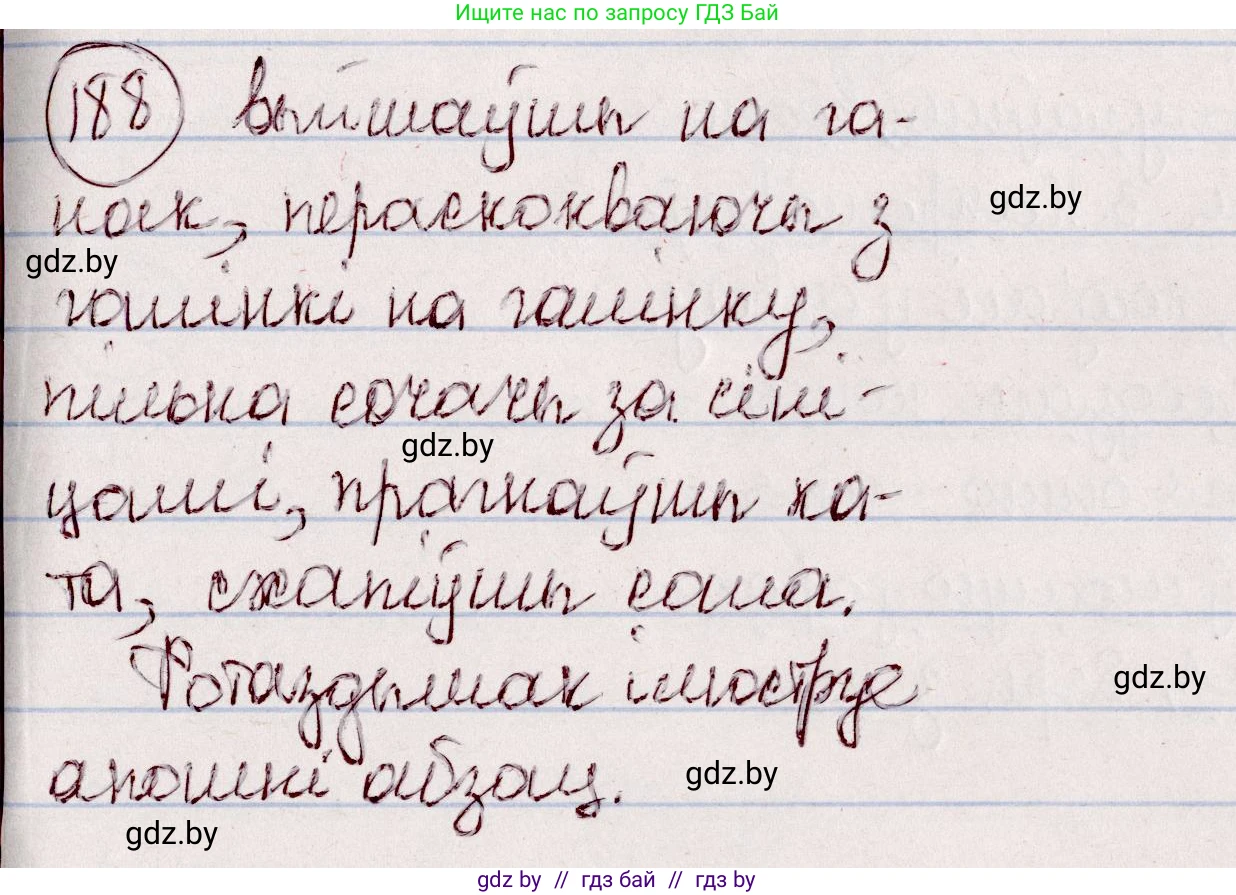 Ищите нас по запросу ГДЗ Бай
188 выйшаўшы на га-
нак, пераскокваючы з
gdz.by
gdz.by
галінкі на галінку,
пільна сочачы за сіні-
gdz.by
цамі, прагнаўшы ка-
та, схапіўшы сала.
Фотаздымак ілюструе
gdz.by
апошні абзац.
gdz.by
gdz.by
gdz by // гдз бай // гдз by